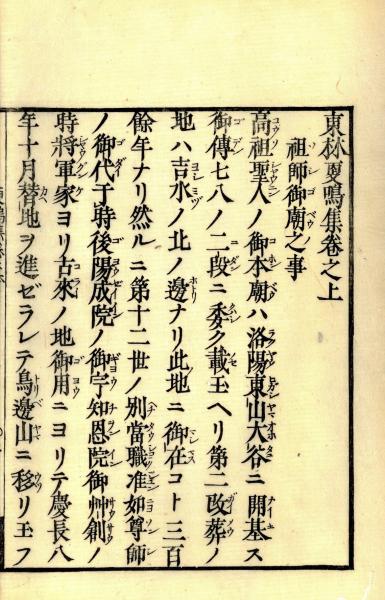 東林夏鳴集卷之上
祖師御廟之事
高祖聖人ノ御本廟ハ洛陽東山大谷ニ開基ス
御傳七八ノ二段ニ委ク載玉ヘリ第二改葬ノ
地ハ吉水ノ北ノ邊ナリ此地ニ御在コト三百
餘年ナリ然ルニ第十二世ノ別當職准如尊師
ノ御代于時後陽成院ノ御宇知恩院御艸創ノ
時將軍家ヨリ古來ノ地御用ニヨリテ慶長八
年十月替地ヲ進ゼラレテ鳥邊山ニ移リ玉フ